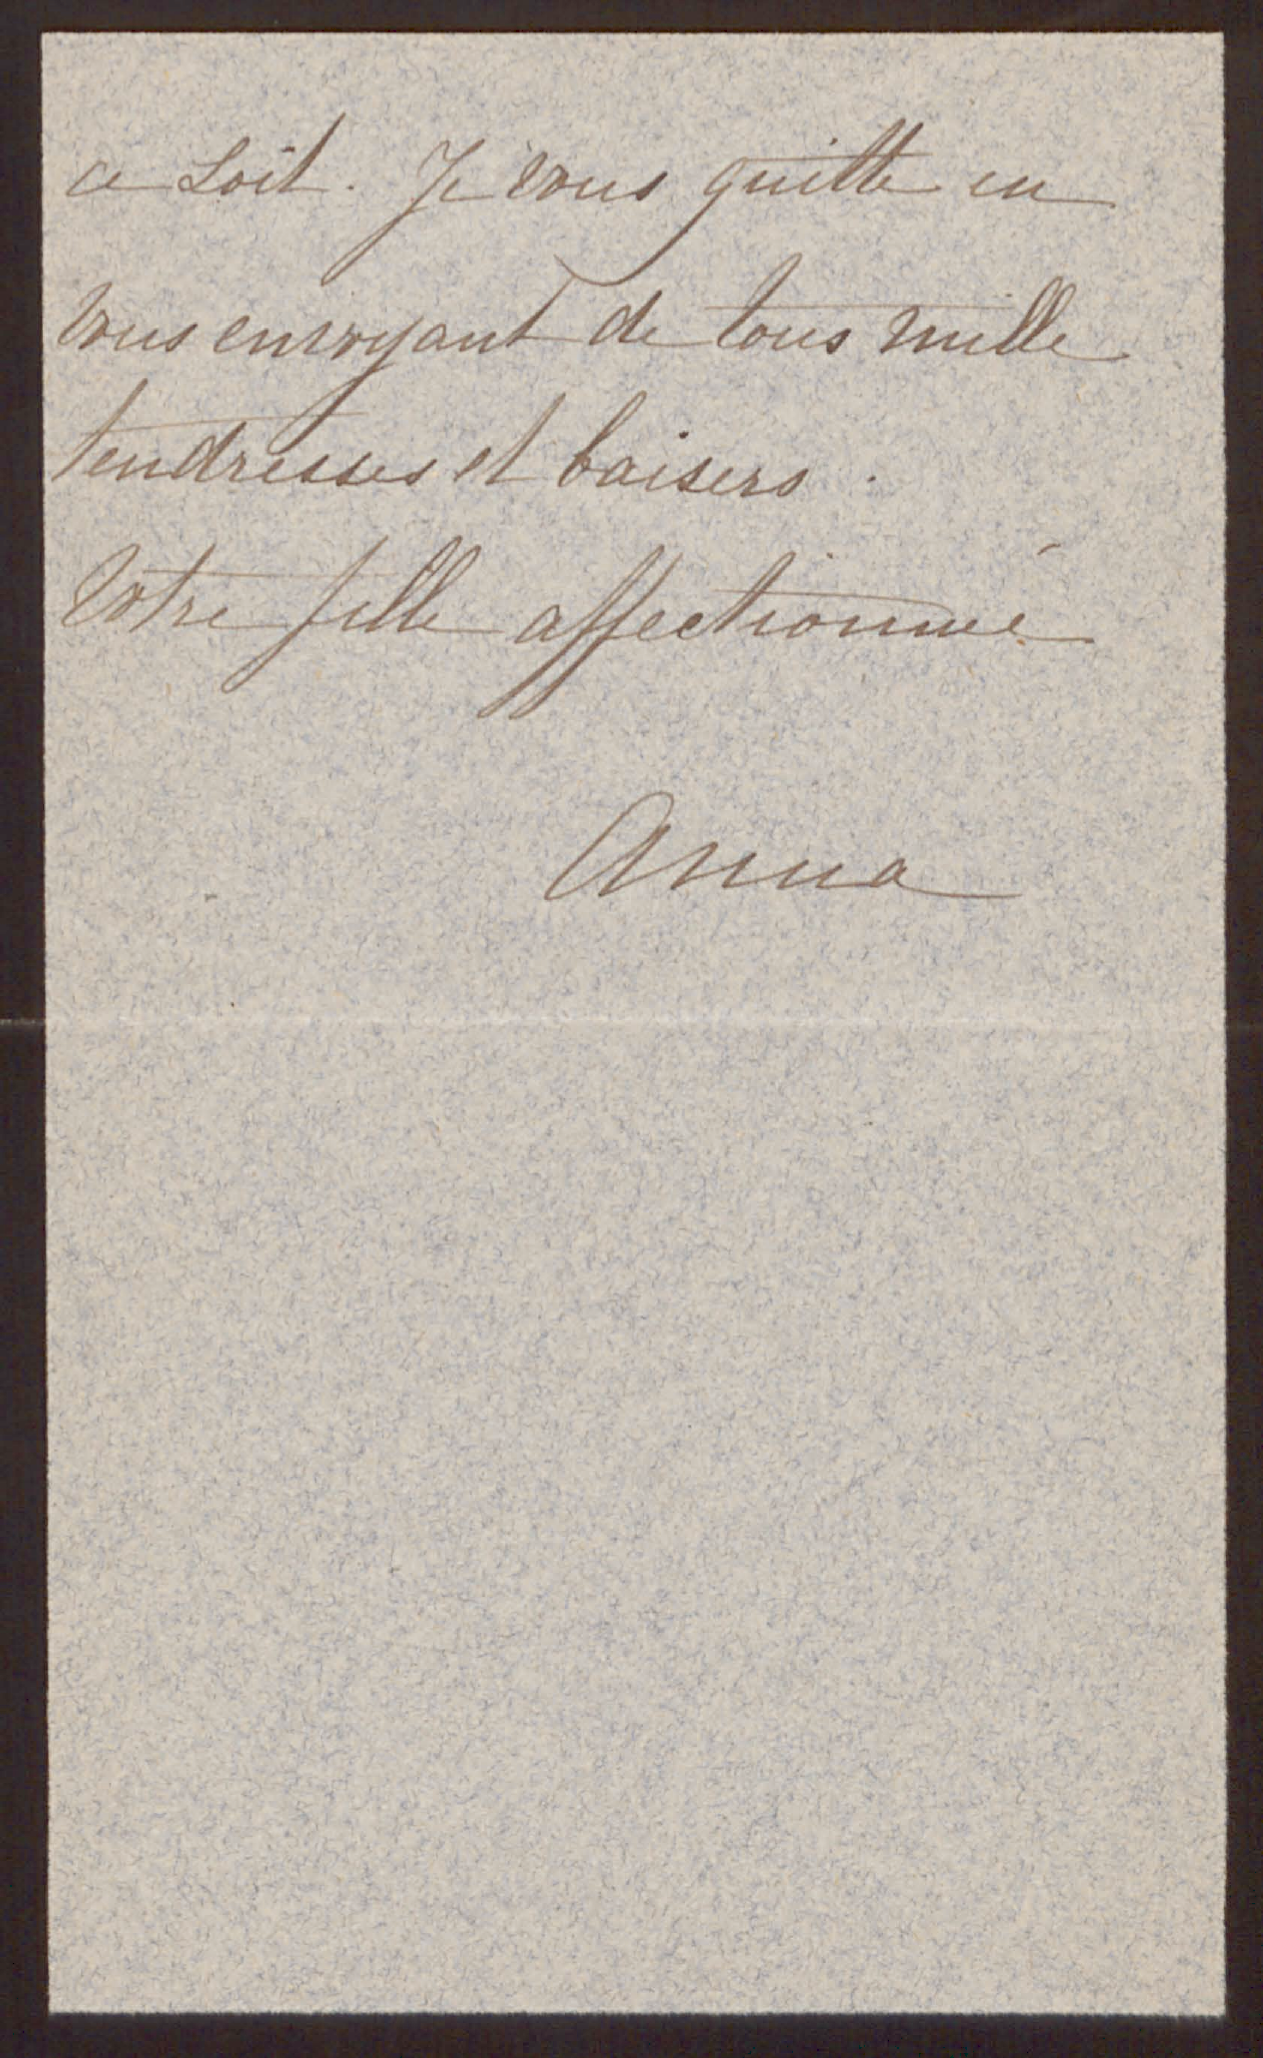 ce soit. Je vous quitte en
vous envoyant de tous mille
tendresses et baisers.
Votre fille affectionnée
Anna